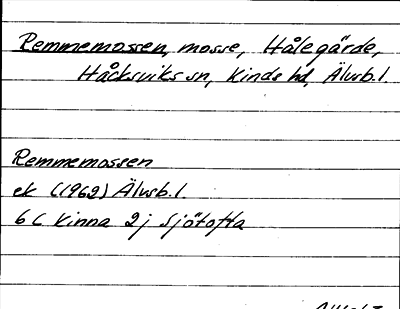 Remmemossen, mosse, Hålegärde,
Håcksviks sn, Kinds hd, Älvsb.l.
Remmemossen
ek (1962) Älvsb.l.
6 C Kinna 2j Sjötofta